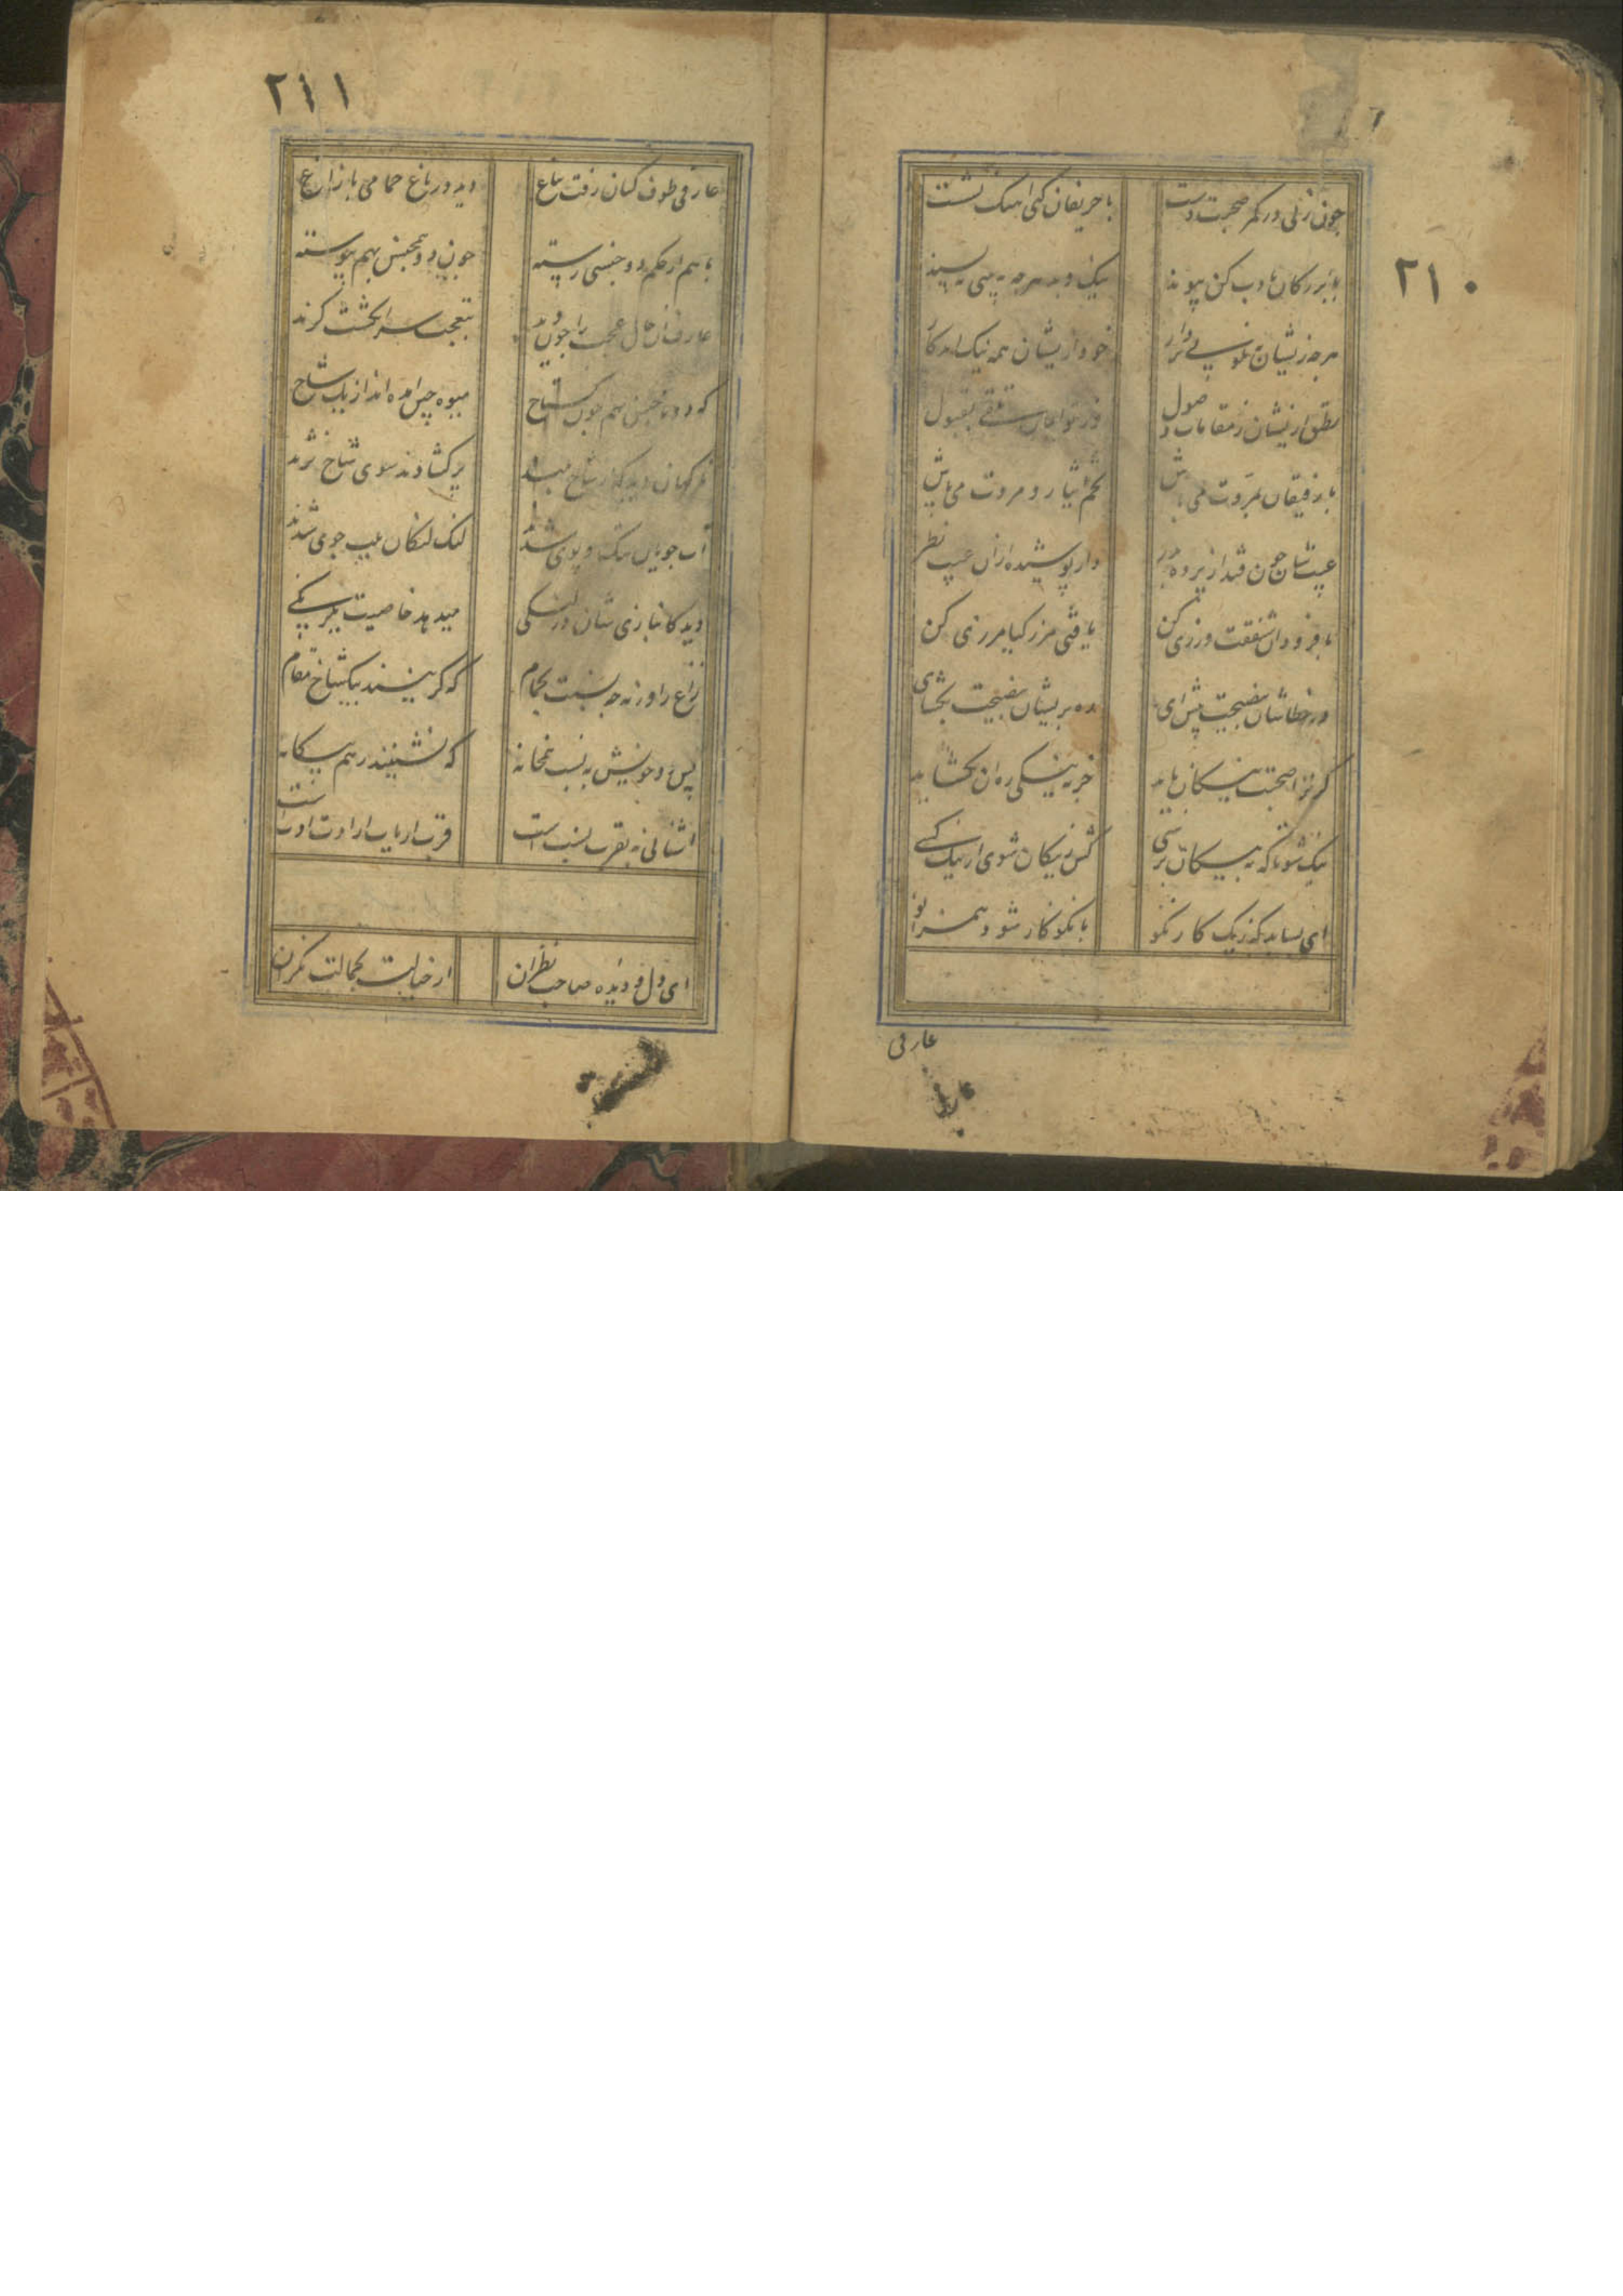 ٢١٠
چون زنی در کمر صحبت دست
با حریفان کنی آهنک نشست
با بزرکان بادب کن پیوند
نیک و بد هرچه به بینی بپسند
هرچه زیشان
خود از یشان همه نیک آمد کار
مطلق از یشان ز مقامات وصول
با رفیقان بمروت می باش
تخم ایثار و مروت می پاش
عیب شان چون فتد از پرده بدر
دار پوشیده ازان عیب نظر
با فرودان شفقت ورزی کن
یافتی مزرکیا مرزی کن
در خطاشان بنصیحت پیش ای
ره بریشان بنصیحت بکشای
کر ترا صحبت نیکان باید
جز به نیکی ره آن نکشاید
نیک شو تا که به نیکان برسی
کش ز نیکان شوی ار نیک کسی
ای بسا بد که ز یک کار نکو
با نکو کار شود همزانو
عارفی
٢١١
عارفی طوف کنان رفت بباغ
دید در باغ حمامی با زاغ
با هم از حکم دو جنسی رسته
چون دو همجنس بهم پیوسته
عارف آن حال عجب را چون دید
بتعجب سر انکشت کزید
که دو ناجنس بهم چون کستاخ
میوه چین آمده اند از یک شاخ
ناکهان دید کز
پر کشادند سوی شاخ دکر
آب جویان بتک و پوی شدند
لنک لنکان بلب جوی شدند
دید کانبازی شان در لنکی
میدهد خاصیت یکرنکی
زاغ را ورنه چه نسبت بحمام
که کزینند بیکشاخ مقام
پس دو خویش به نسب همخانه
که نشینند ز هم بیکانه
آشنائی نه بقرب نسب است
قرب ارباب ارادت ادب است
ای دل و دیده صاحب نظران
از خیالت بجمالت نکران